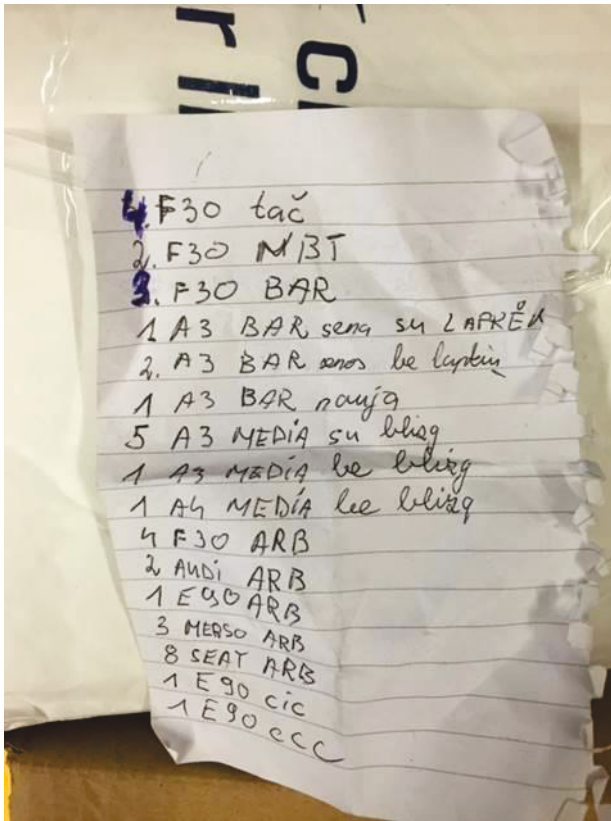 4. F30 tač
2. F30 NBT
3. F30 BAR
1 A3 BAR sena su LAPKĖM
2. A3 BAR senos be
1 A3 BAR nauja
5 A3 MEDÍA su
1 A3 MEDÍA be
1 A4 MEDÍA be
4 F30 ARB
2 AUDI ARB
1 E90 ARB
3 MERSO ARB
8 SEAT ARB
1 E90 cic
1 E90 CCC